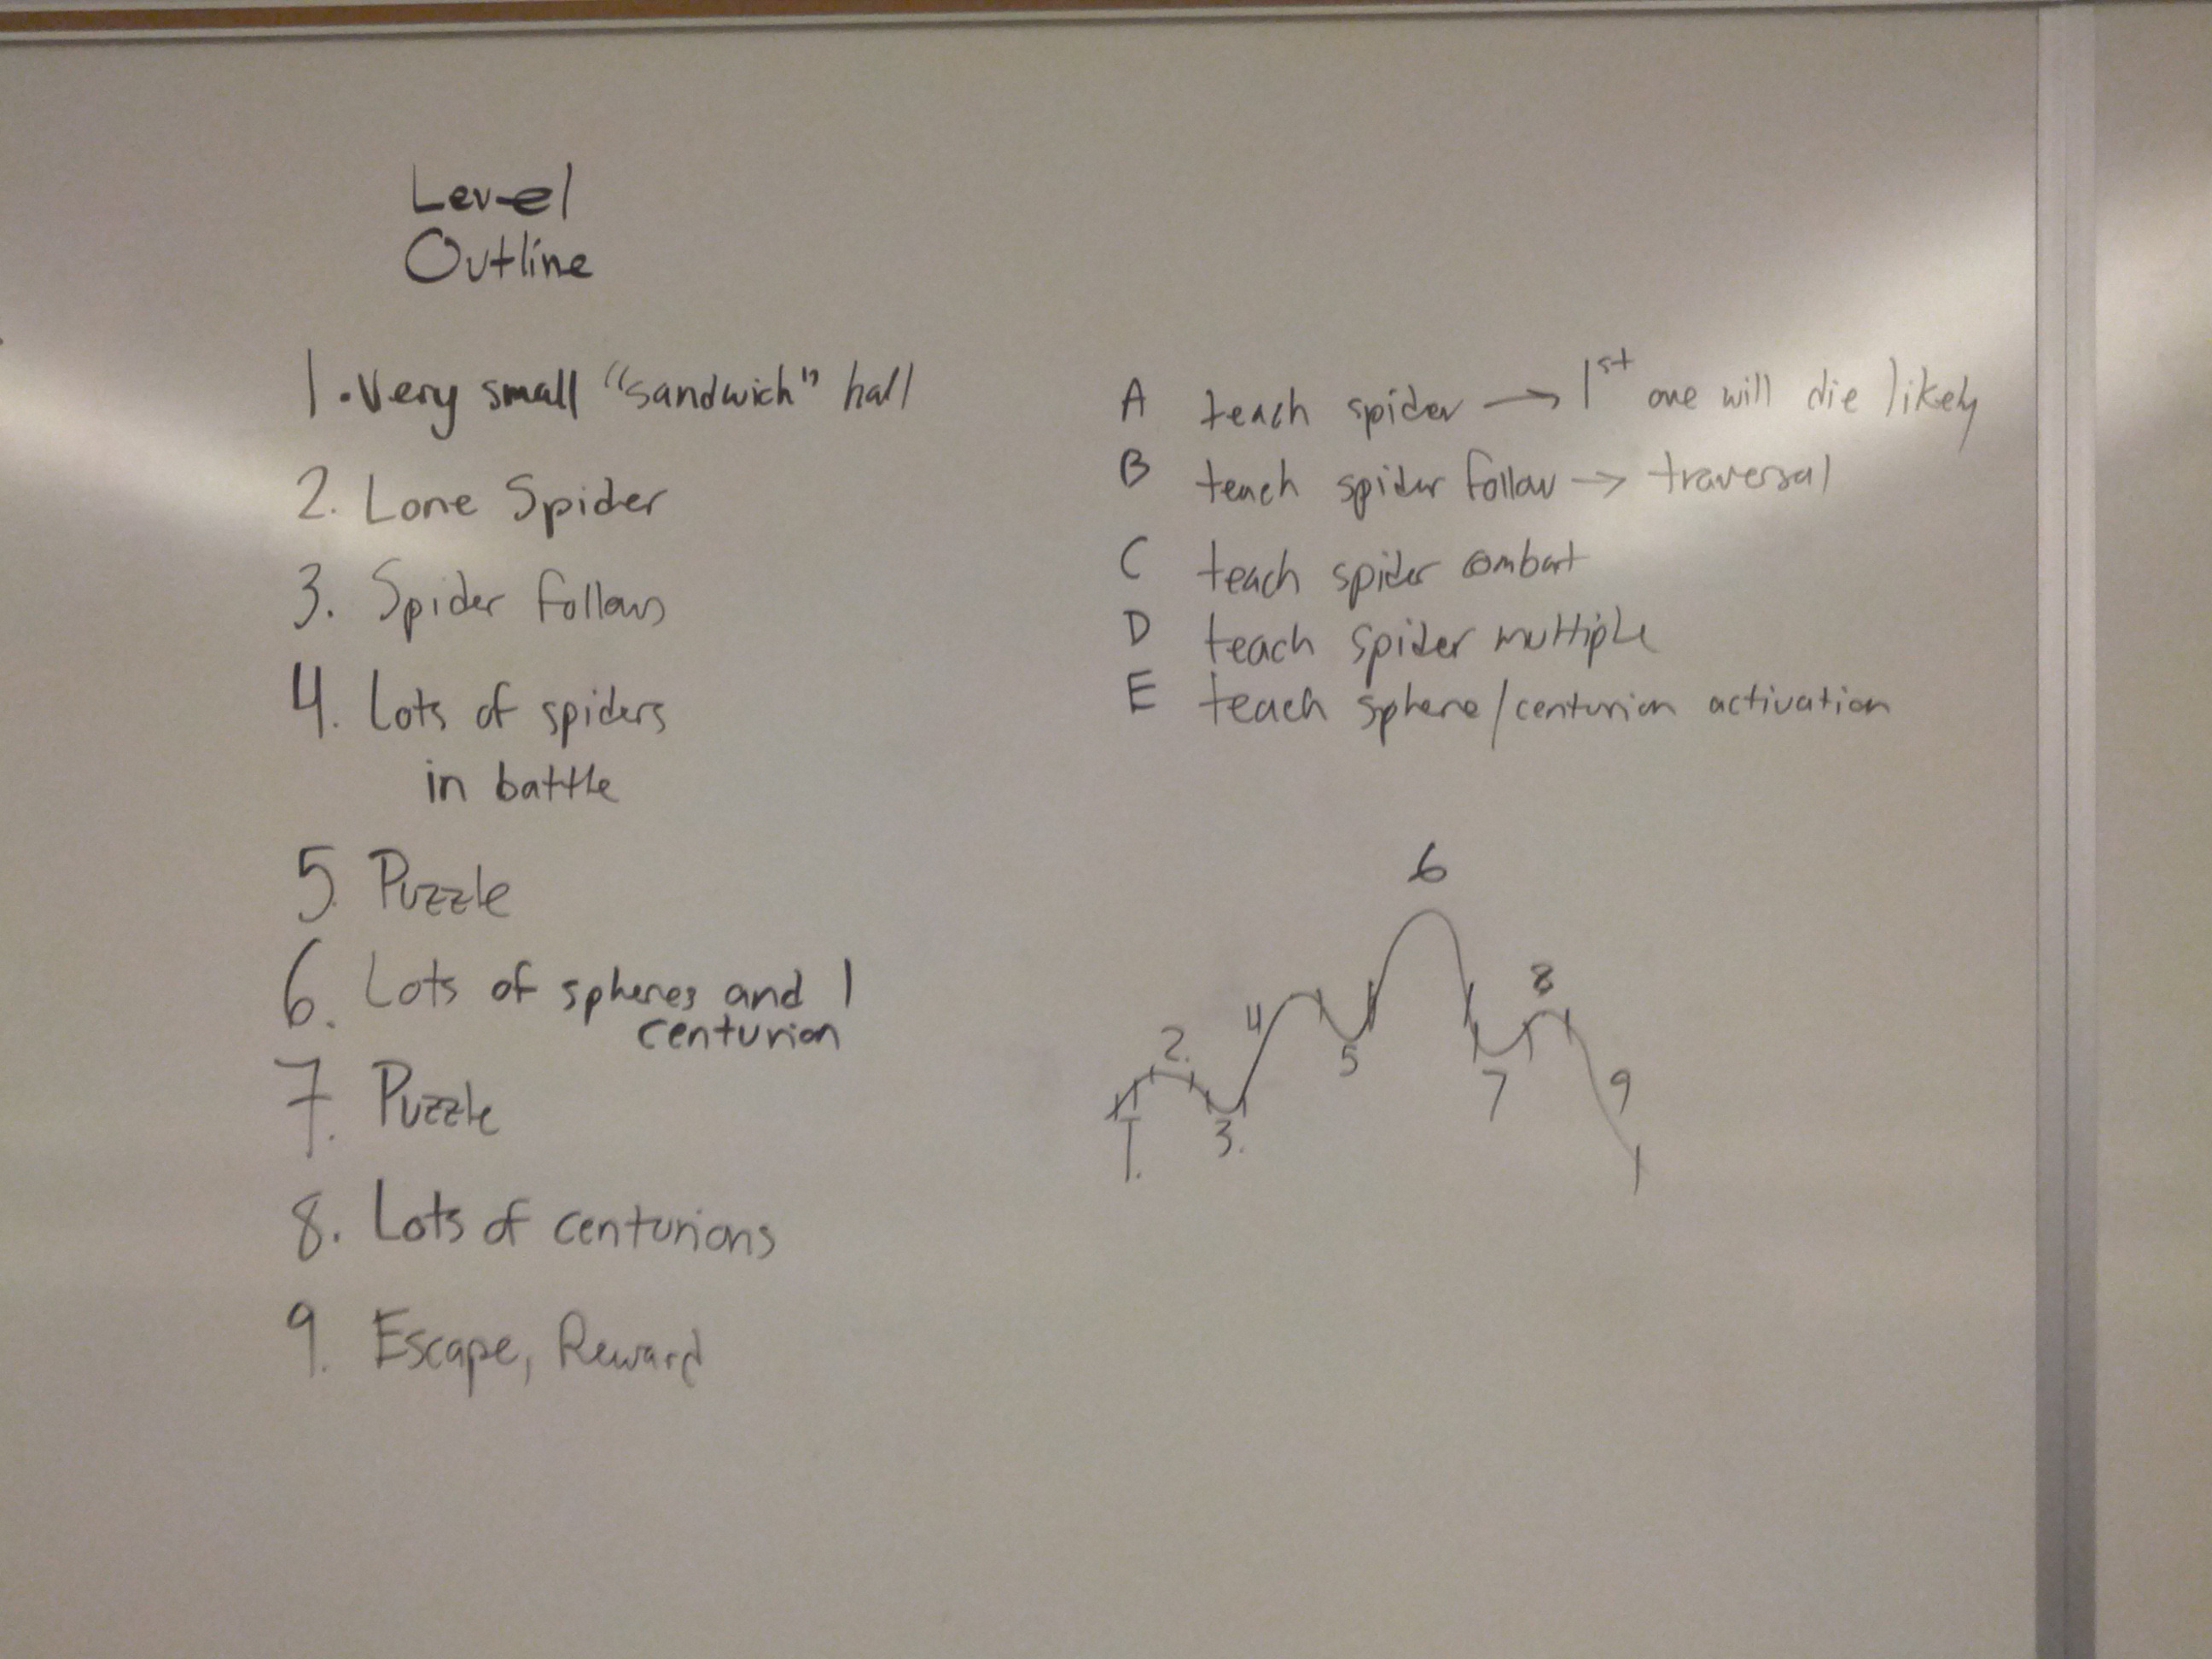 Level
Outline
1. Very small "sandwich" hall
2. Lone Spider
3. Spider follows
4. Lots of spiders
in battle
5. Puzzle
6. Lots of spheres and 1
centurion
7. Puzzle
8. Lots of centurions
9. Escape, Reward
A teach spider → 1st one will die likely
B teach spider follow → traversal
C teach spider combat
D teach spider multiple
E teach sphere/centurion activation
6
8
4
2.
5
9
7
3.
1.